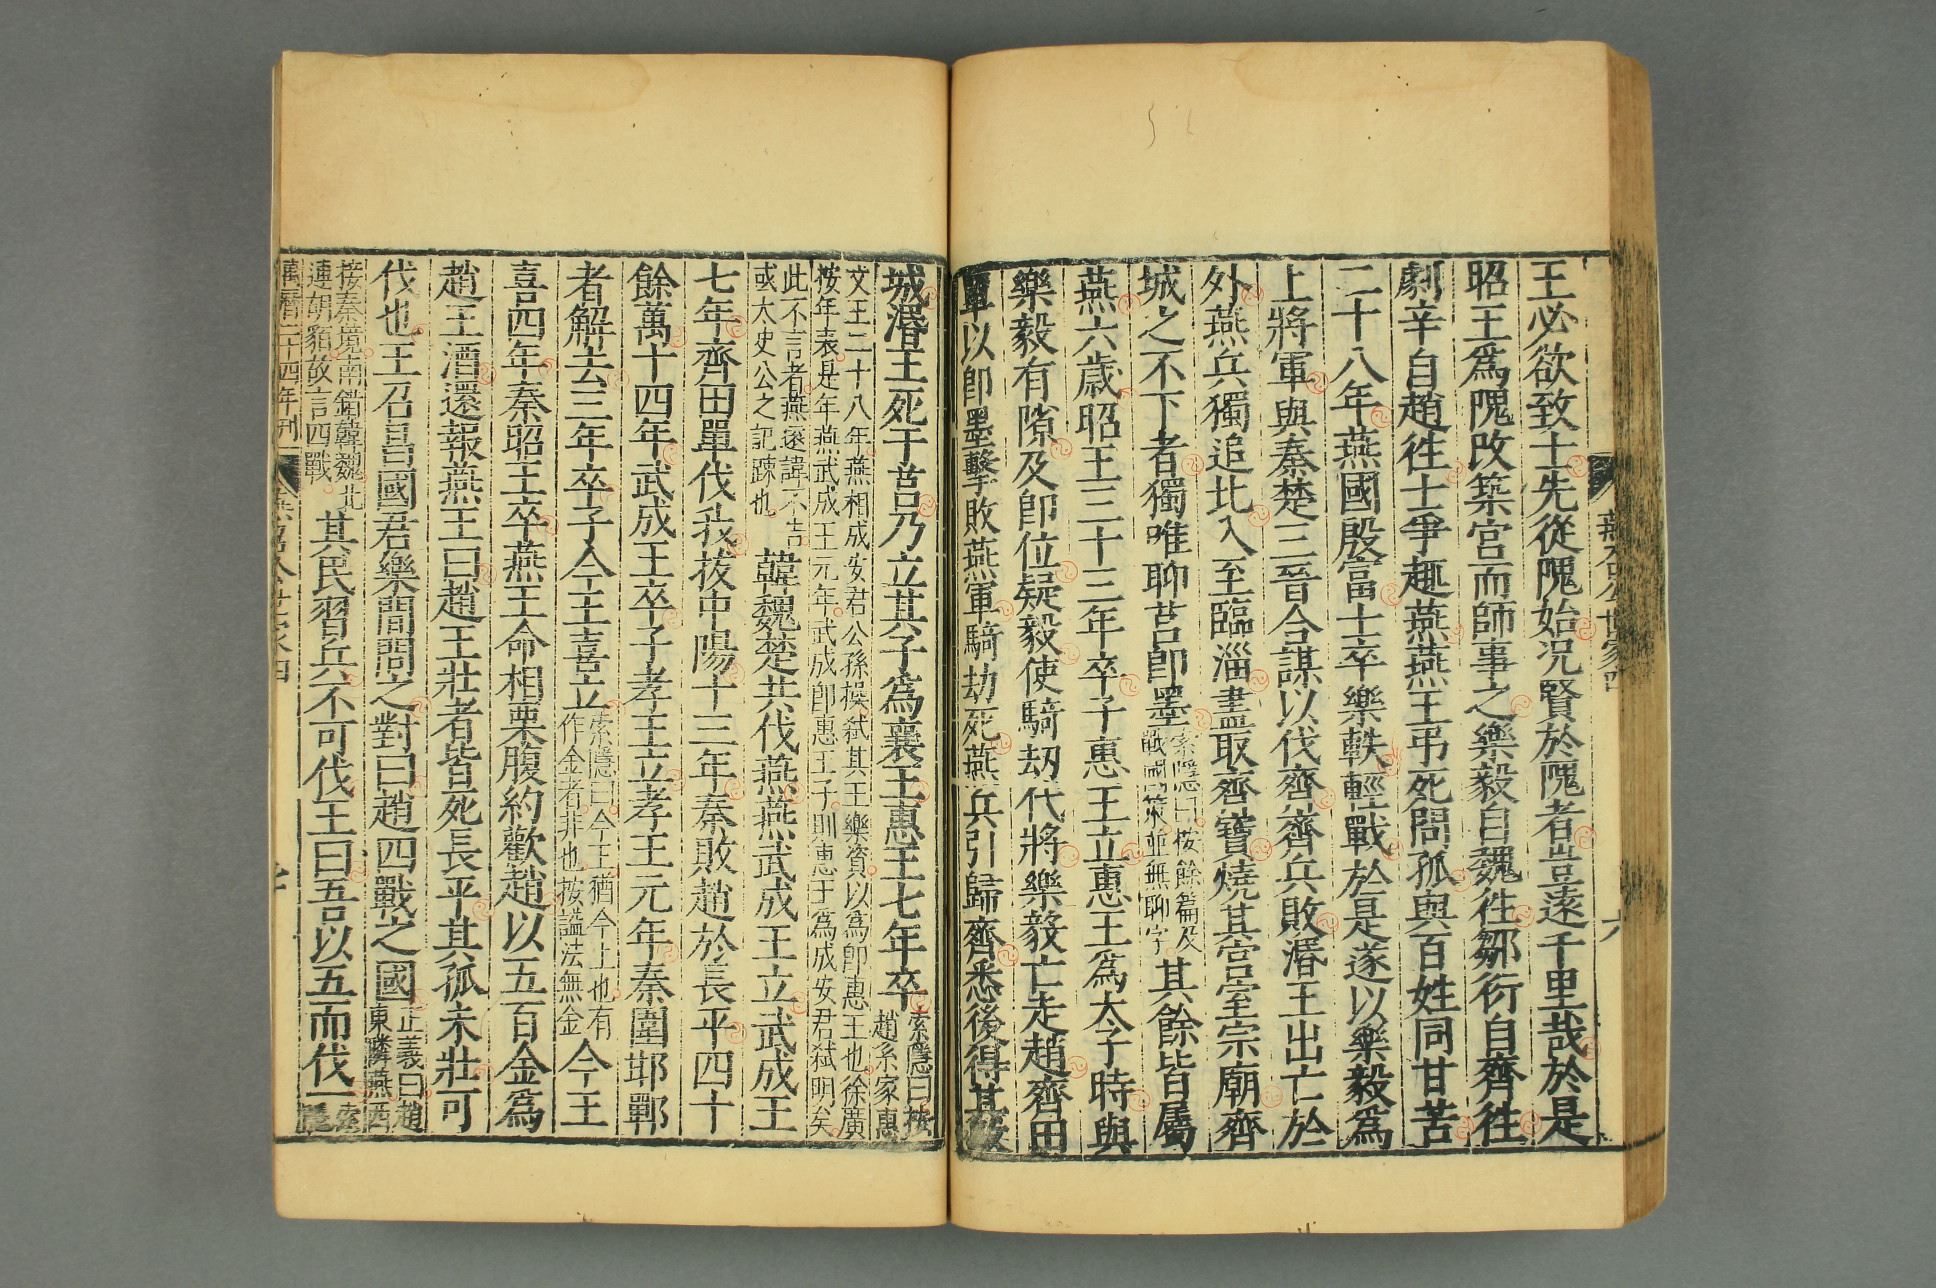 燕召公世家四
六
王必欲致士先從隗始况賢於隗者豈遠千里哉於是
昭王爲隗改築宮而師事之樂毅自魏徃鄒衍自齊徃
劇辛自趙徃士爭趣燕燕王弔死問孤與百姓同甘苦
二十八年燕國殷富士卒樂軼輕戰於是遂以樂毅爲
上將軍與秦楚三晉合謀以伐齊齊兵敗湣王出亡於
外燕兵獨追北入至臨淄盡取齊寶燒其宮室宗廟齊
城之不下者獨唯聊莒卽墨索隱曰按餘篇及戰國策並無聊字其餘皆屬
燕六歲昭王三十三年卒子惠王立惠王爲太子時與
樂毅有隙及卽位疑毅使騎劫代將樂毅亡走趙齊田
單以卽墨擊敗燕軍騎劫死燕兵引歸齊悉後得其故
城湣王死于莒乃立其子爲襄王惠王七年卒索隱曰按趙系家惠
文王二十八年燕相成安君公孫操弑其王樂資以爲卽惠王也徐廣
按年表是年燕武成王元年武成卽惠王子則惠王爲成安君弑明矣
此不言者燕遠諱不告
或太史公之記踈也韓魏楚共伐燕燕武成王立武成王
七年齊田單伐我拔中陽十三年秦敗趙於長平四十
餘萬十四年武成王卒子孝王立孝王元年秦圍邯鄲
者解去三年卒子今王喜立索隱曰今王猶今上也有作金者非也按諡法無金今王
喜四年秦昭王卒燕王命相栗腹約歡趙以五百金爲
趙王酒還報燕王曰趙王壯者皆死長平其孤未壯可
伐也王召昌國君樂間問之對曰趙四戰之國正義曰趙東隣燕西
接秦境南錯韓魏北
連胡貊故言四戰其民習兵不可伐王曰吾以五而伐一索隱
萬曆二十四年刊
燕召公世家四